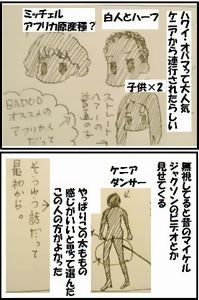 ハワイ・オバマって大人気
ケニアから連行されたらしい
白人とハーフ
ミッチェル
アフリカ原産種?
子供×2
BADDO
オススメの
アフリカ人
だって
無視してると昔のマイケル
ジャクソンのビデオとか
見せてくる
ケニア
ダンサー
やっぱりこの太ももの
感じがいいと思って選んだ
この人の方がよかった
そうゆう話だって
最初から。